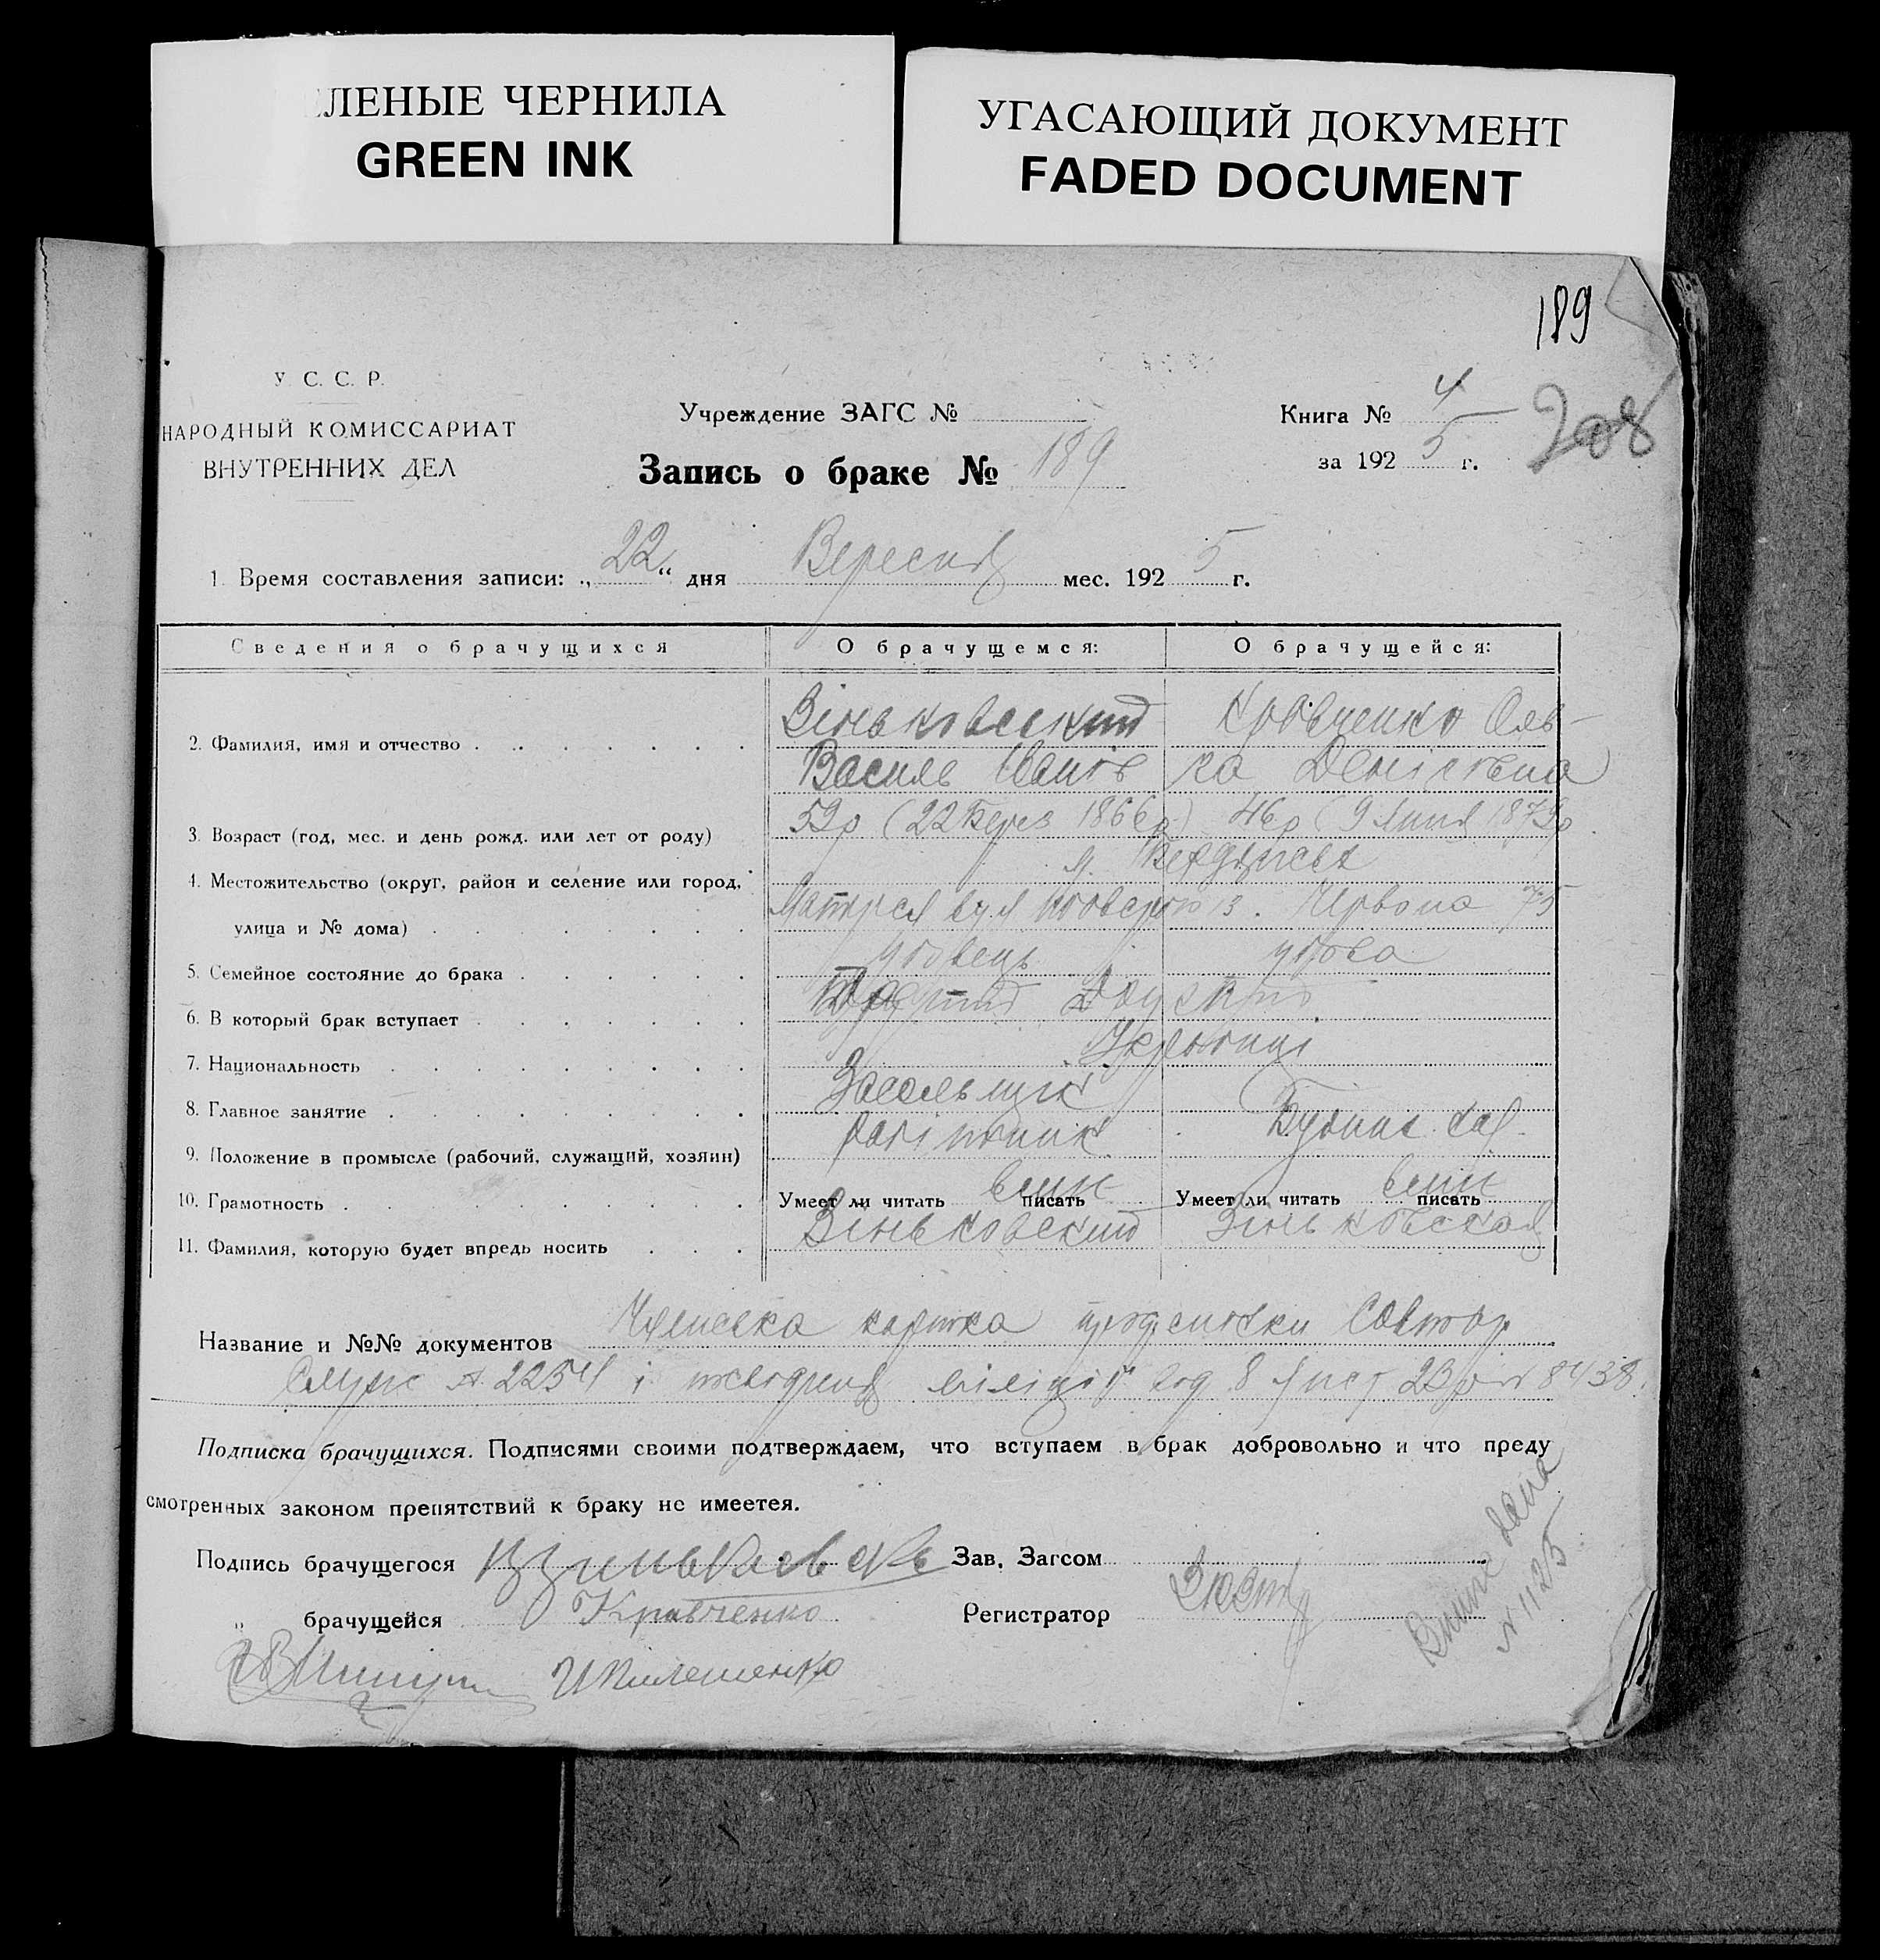 ЛЕНЫЕ ЧЕРНИЛА
GREEN INK
УГАСАЮЩИЙ ДОКУМЕНТ
FADED DOCUMENT
189
208
У. С. С. Р.
НАРОДНЫЙ КОМИССАРИАТ
ВНУТРЕННИХ ДЕЛ
Учреждение ЗАГС №
Запись о браке № 189
Книга № 4
за 1925 г.
1. Время составления записи: „22“ дня Вересня мес. 1925 г.
Сведения о брачущихся О брачущемся: О брачущейся:
2. Фамилия, имя и отчество Зіньковський Кравченко Оль-
Василь Іванов га Денісівна
3. Возраст (год, мес. и день рожд. или лет от роду) 59р (22 Берез 1866р) 46р (9 Липня 1879р
4. Местожительство (округ, район и селение или город, м. Бердичев
улица и № дома) вул 13. Червона 75
5. Семейное состояние до брака удовець удова
6. В который брак вступает Другий
7. Национальность Українці
8. Главное занятие
9. Положение в промысле (рабочий, служащий, хозяин) робітник
10. Грамотность Умеет ли читать вміє писать Умеет ли читать вміє писать
11. Фамилия, которую будет впредь носить Зіньковский Зіньковская
Название и №№ документов Членська картка
2254 і міліції 8 23 8438.
Подписка брачущихся. Подписями своими подтверждаем, что вступаем в брак добровольно и что преду
смотренных законом препятствий к браку не имеетея.
Подпись брачущегося Зав. Загсом
„ брачущейся Кравченко Регистратор
дана
№ 1125